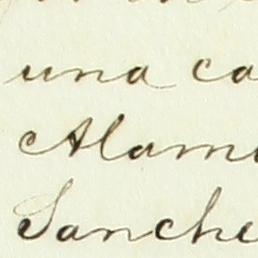 una ca
Alam
Sanche